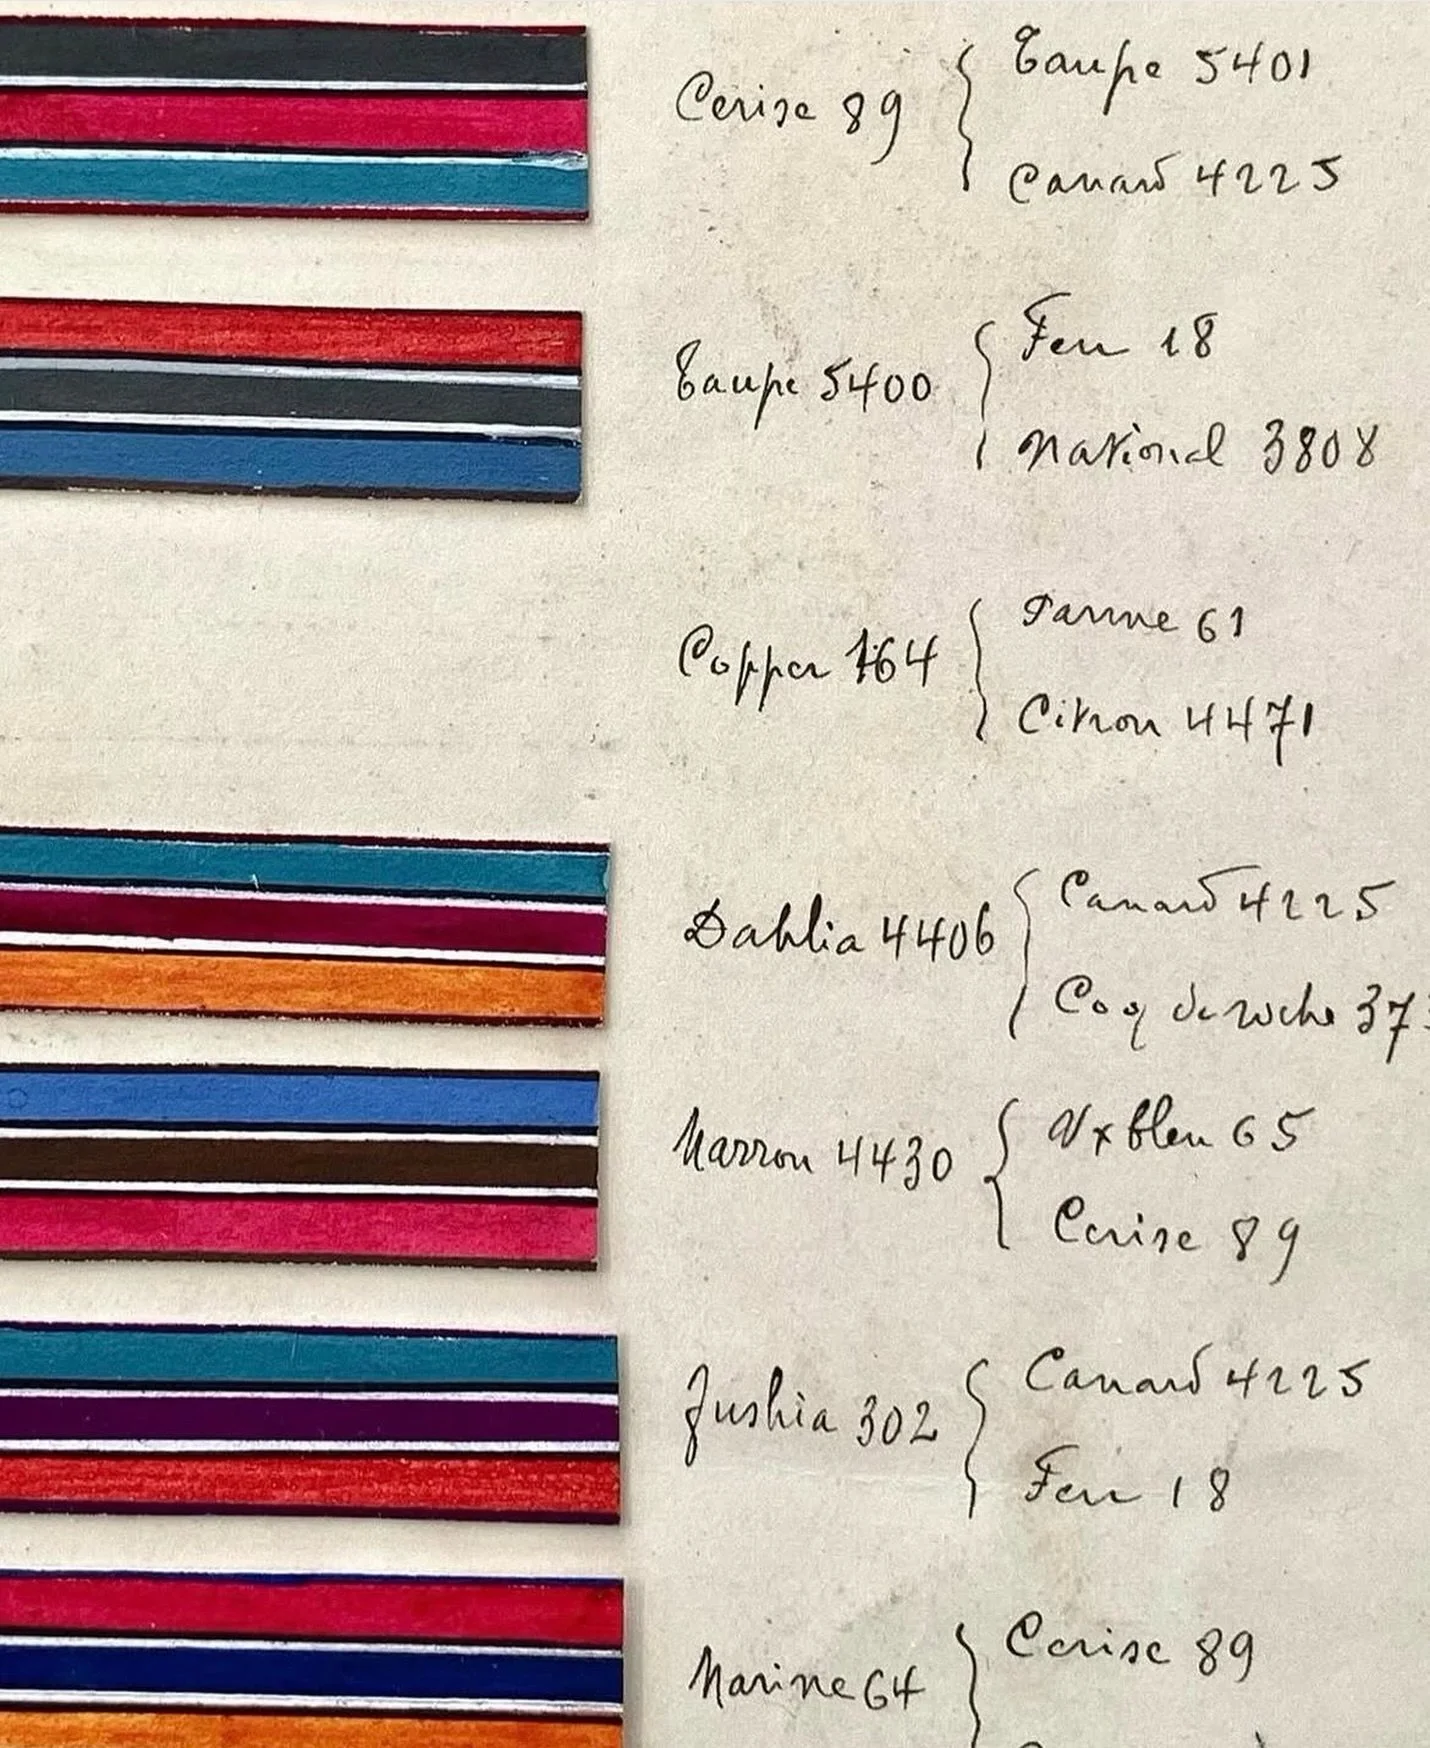 Cerise 89 { Taupe 5401
Canard 4225
Taupe 5400 { Feu 18
National 3808
Copper 164 {
61
Citron 4471
Dahlia 4406 { Canard 4225
Coq de roche 373
Marron 4430 { Vx bleu 65
Cerise 89
Fushia 302 { Canard 4225
Feu 18
Marine 64 { Cerise 89